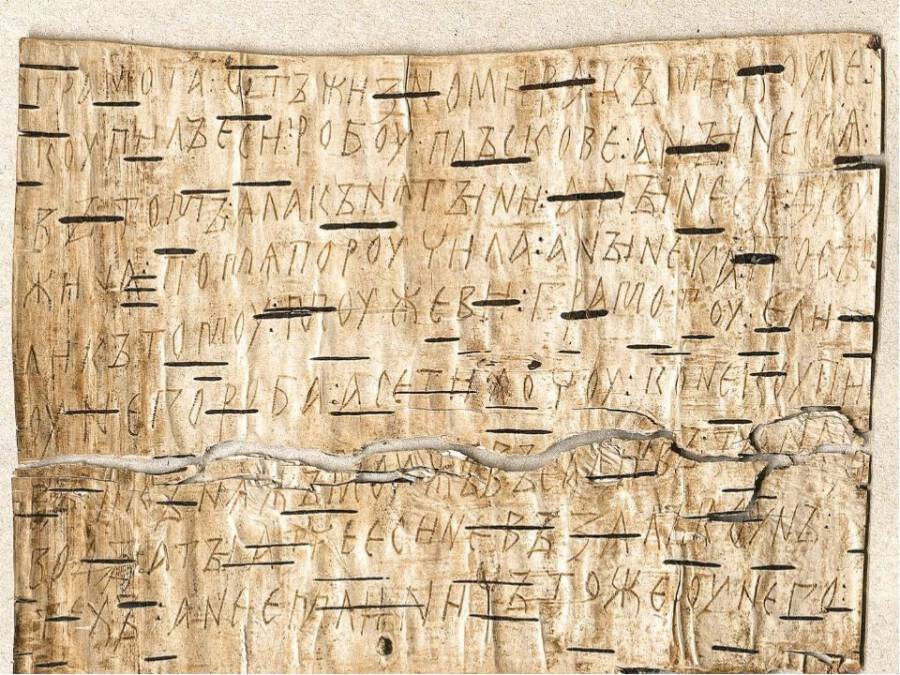 ГРАМОТА : ѠТЪ ЖИЗНОМИРА : КЪ МИКОУЛЕ :
КОУПИЛЪ ЕСИ : РОБОУ : ПЛЪСКОВЕ : А НЫНЕ МѦ :
ВЪ ТОМЪ : ѦЛА КЪНѦГЫНИ : А НЫНЕ СѦ ДРОУ
ЖИНА : ПО МѦ ПОРОУЧИЛА : А НЫНЕ КА : ПОСЪ
ЛИ КЪ ТОМОУ : МОУЖЕВИ : ГРАМОТОУ : ЕЛИ
ОУ НЕГО РОБА : А СЕ ТИ ХОЧОУ : КОНЕ КОУПИ
КЪНѦЖЪ МОУЖЪ
ВОДЫ : А ТЫ АТЧЕ ЕСИ НЕ ВЪЗАЛЪ КОУНЪ :
ТЕХЪ : А НЕ ЕМЛИ : НИЧЪТО ЖЕ ОУ НЕГО :